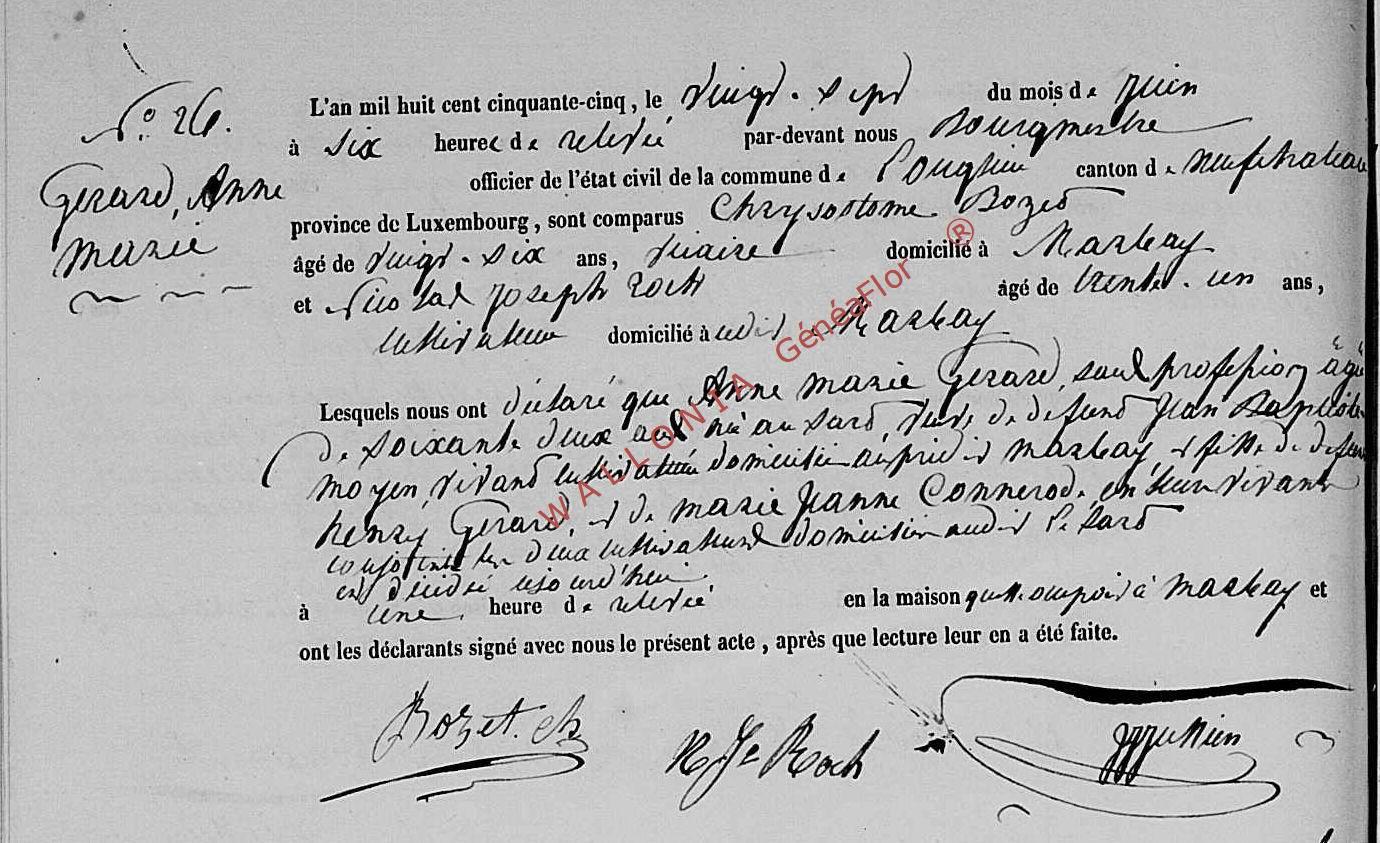 N.° 26.
Gerard, Anne
Marie
L'an mil huit cent cinquante-cinq, le vingt-sept du mois de juin
à six heures de relevée par-devant nous Bourgmestre
officier de l'état civil de la commune de canton de neufchateau
province de Luxembourg, sont comparus Chrysostome Bozet
âgé de vingt-six ans, vicaire domicilié à Marbay
et Nicolas Joseph Roch âgé de trente-un ans,
cultivateur domicilié à udit Marbay
Lesquels nous ont déclaré que Anne Marie Gerard, sans profession âgée
de soixante deux ans née au Sard, veuve de defunt Jean Baptiste
moyen, vivant cultivateur domicilié au prédit Marbay, et fille de defunt
henry Gerard, et de marie Jeanne Connerod, en leur vivant
conjoints tous deux cultivateurs domiciliés audit le Sard
est décédée
à une heure de relevée en la maison qu'elle occupait à Marbay et
ont les déclarants signé avec nous le présent acte, après que lecture leur en a été faite.
Bozet. ch
N Jh Roch
WALLONIA GénéaFlor ®